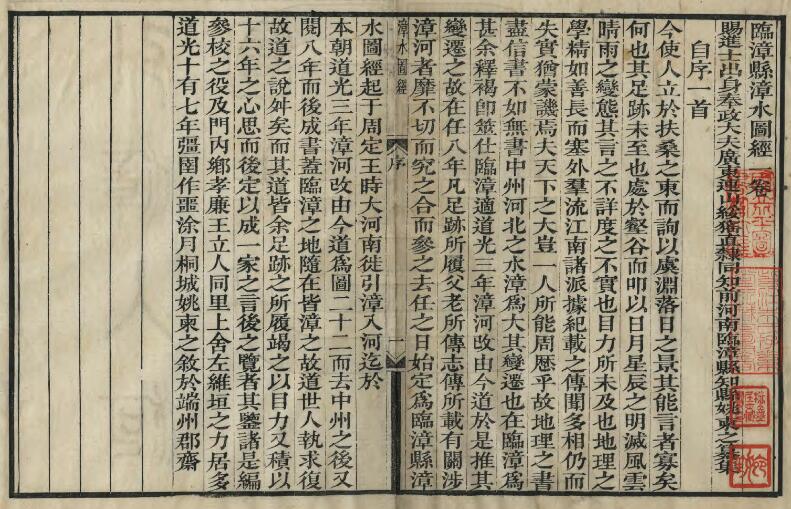 臨漳縣漳水圖經一卷
賜進士出身奉政大夫廣東連山綏猺直隸同知前河南臨漳縣知縣姚柬之纂集
自序一首
今使人立於扶桑之東而詢以虞淵落日之景其能言者寡矣
何也其足跡未至也處於壑谷而叩以日月星辰之明滅風雲
晴雨之變態其言之不詳度之不實也目力所未及也地理之
學精如善長而塞外羣流江南諸派據紀載之傳聞多相仍而
失實猶蒙譏焉夫天下之大豈一人所能周歷乎故地理之書
盡信書不如無書中州河北之水漳爲大其變遷也在臨漳爲
甚余釋褐卽筮仕臨漳適道光三年漳河改由今道於是推其
變遷之故在任八年凡足跡所履父老所傳志傳所載有關涉
漳河者靡不切而究之合而參之去任之日始定爲臨漳縣漳
漳水圖經
序
一
水圖經起于周定王時大河南徙引漳入河迄於
本朝道光三年漳河改由今道爲圖二十二而去中州之後又
閱八年而後成書蓋臨漳之地隨在皆漳之故道世人執求復
故道之說舛矣而其道皆余足跡之所履竭之以目力又積以
十六年之心思而後定以成一家之言後之覽者其鑒諸是編
參校之役及門內鄉孝廉王立人同里上舍左維垣之力居多
道光十有七年彊圉作噩涂月桐城姚柬之敘於端州郡齋